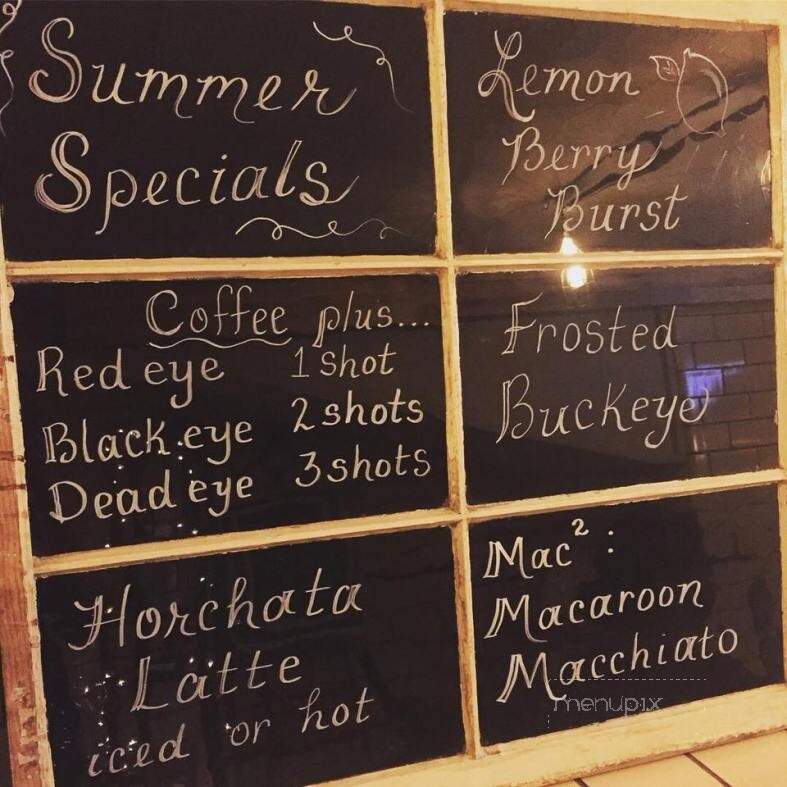 Summer
Specials
Lemon
Berry
Burst
Coffee plus...
Red eye 1 shot
Black eye 2 shots
Dead eye 3 shots
Frosted
Buckeye
Horchata
Latte
iced or hot
Mac²:
Macaroon
Macchiato
menupix